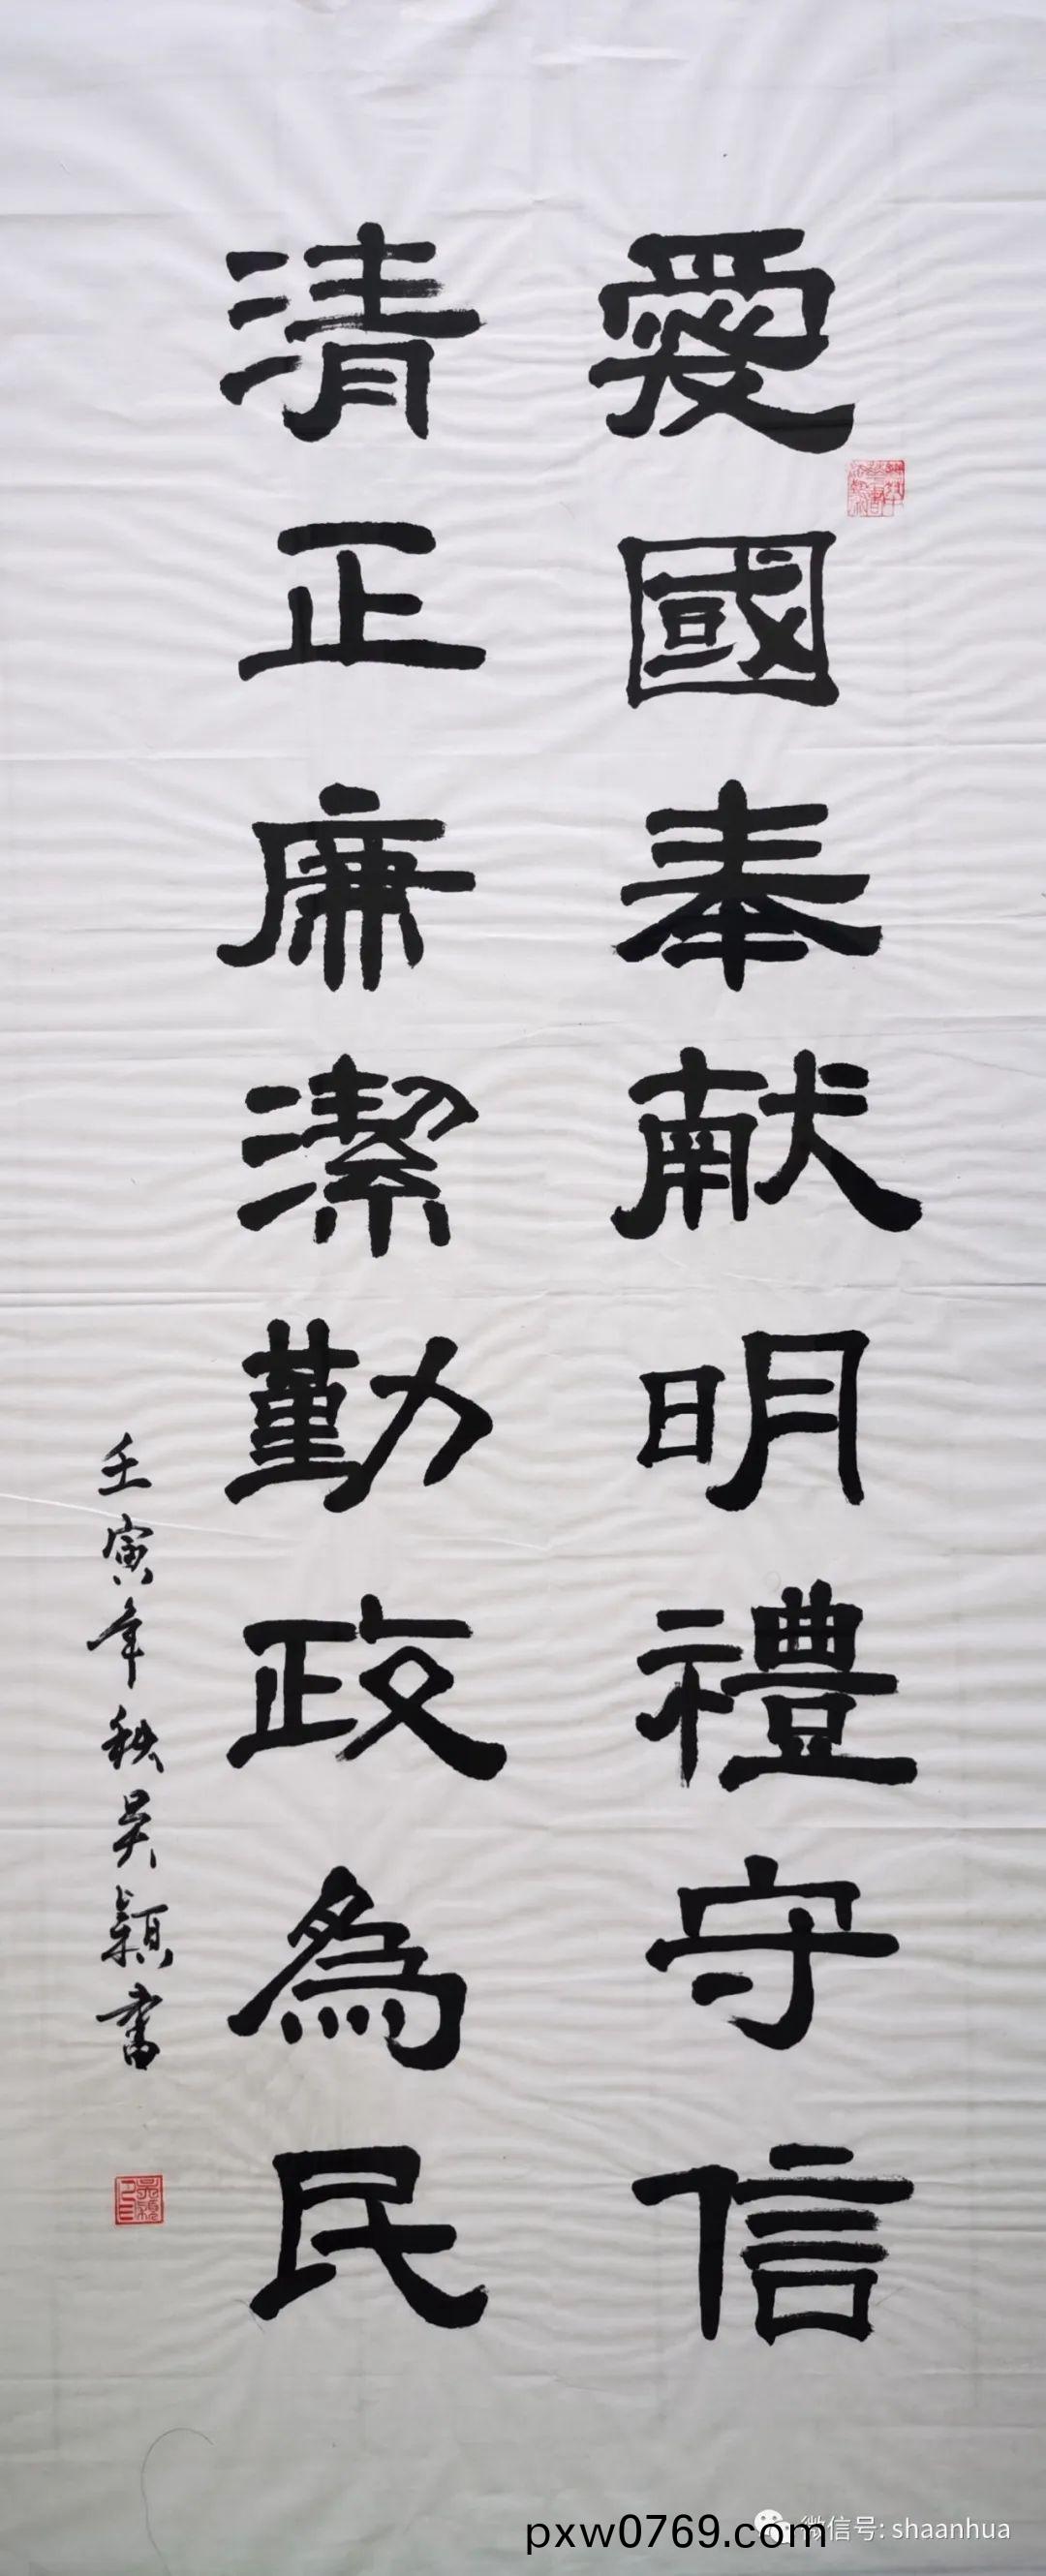 愛國奉献明禮守信
清正廉潔勤政為民
壬寅年秋吴颖書
吴颖
微信号: shaanhua
pxw0769.com